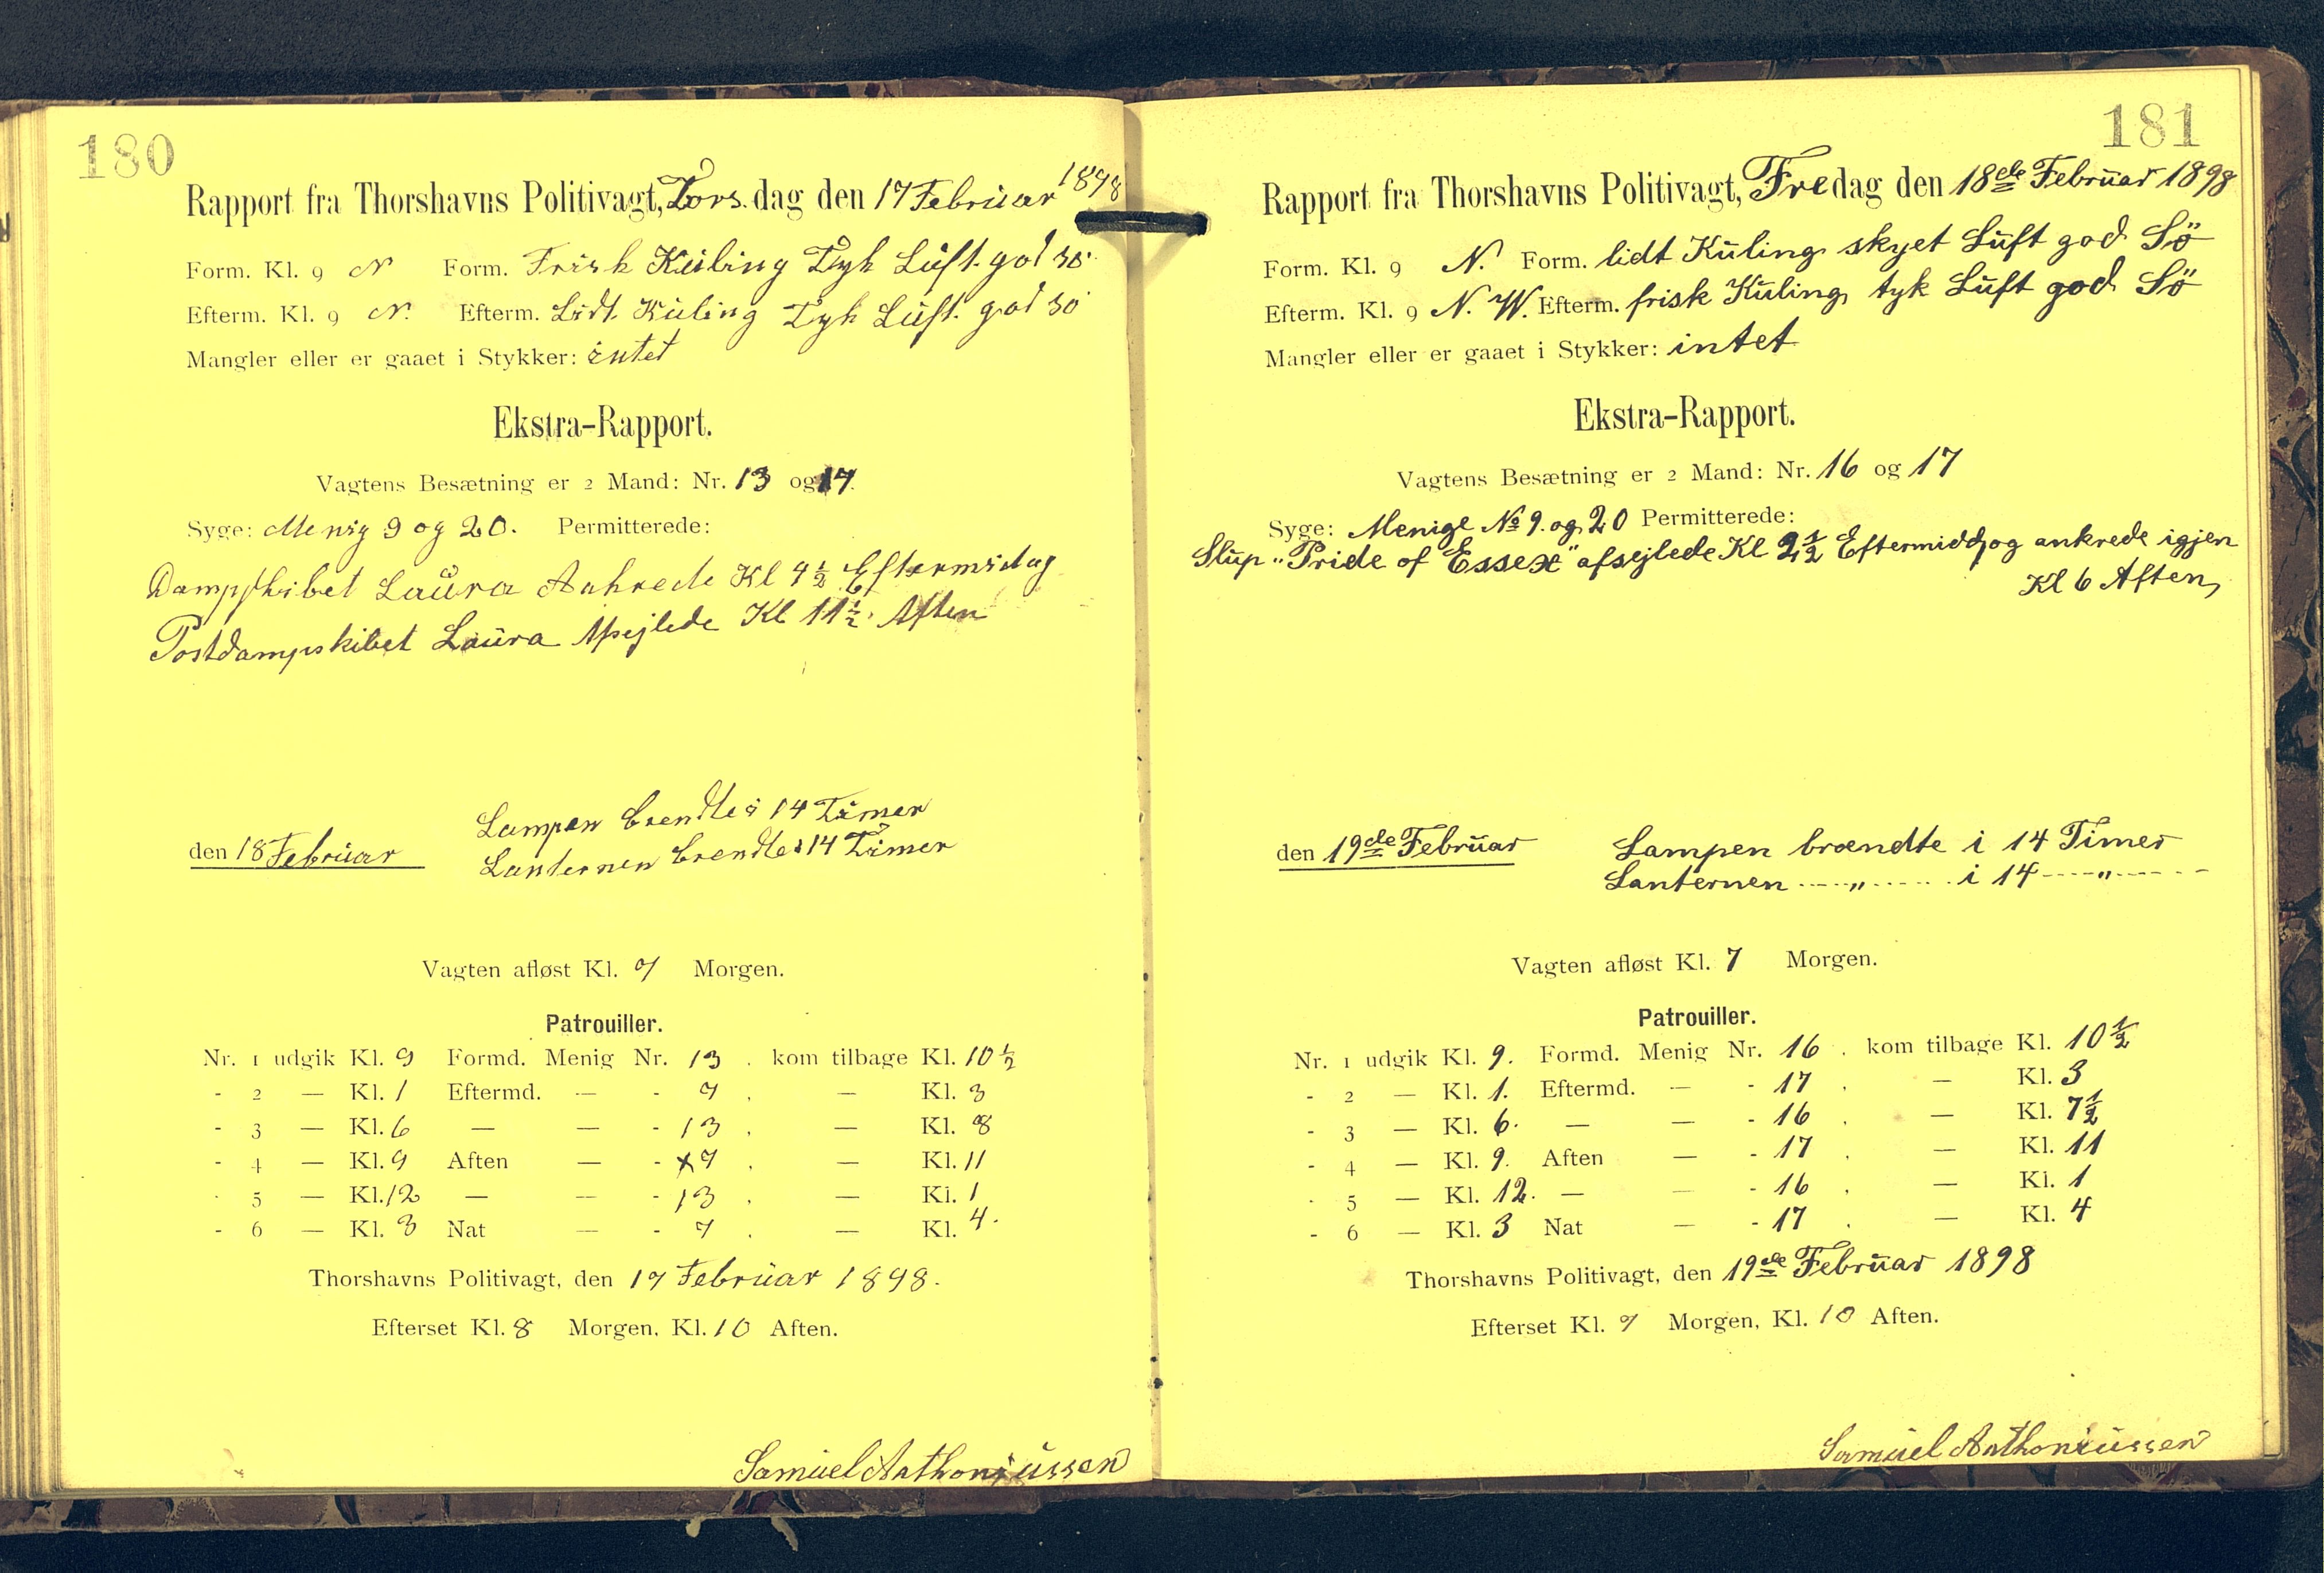 180
Rapport fra Thorshavns Politivagt, Torsdag den 17 Februar 1898
Form. Kl. 9 N Form. Frisk Kuling Tyk Luft god sö
Efterm. Kl. 9 N. Efterm. Lidt Kuling Tyk Luft god sö
Mangler eller er gaaet i Stykker: intet
Ekstra-Rapport.
Vagtens Besætning er 2 Mand: Nr. 13 og
Syge: Menig 9 og 20. Permitterede:
Dampskibet Laura Ankrede Kl 4½ Eftermidag
Postdampskibet Laura Afsejlede Kl 11½ Aften
Lampen brendte i 14 Timer
den 18 Februar
Lanternen brendte i 14 Timer
Vagten afløst Kl. 7 Morgen.
Patrouiller.
Nr. 1 udgik Kl. 9 Formd. Menig Nr. 13 . kom tilbage Kl. 10½
- 2 — Kl. 1 Eftermd. — - 7 . — Kl. 3
- 3 — Kl. 6 — — - 13 . — Kl. 8
- 4 — Kl. 9 Aften — - 7 . — Kl. 11
- 5 — Kl. 12 — — - 13 . — Kl. 1
- 6 — Kl. 3 Nat — - 7 . — Kl. 4.
Thorshavns Politivagt, den 17 Februar 1898.
Efterset Kl. 8 Morgen, Kl. 10 Aften.
Samuel Anthoniussen
181
Rapport fra Thorshavns Politivagt, Fredag den 18de Februar 1898
Form. Kl. 9 N. Form. lidt Kuling skyet Luft god Sö
Efterm. Kl. 9 N. W. Efterm. frisk Kuling tyk Luft god Sö
Mangler eller er gaaet i Stykker: intet
Ekstra-Rapport.
Vagtens Besætning er 2 Mand: Nr. 16 og 17
Syge: Menige No 9. og 20 Permitterede:
Slup „Pride of Essex" afsejlede Kl 2½ Eftermidd, og ankrede igjen
Kl 6 Aften,
den 19de Februar Lampen brændte i 14 Timer
Lanternen ---- „ ---- i 14 ---- „ ----
Vagten afløst Kl. 7 Morgen.
Patrouiller.
Nr. 1 udgik Kl. 9. Formd. Menig Nr. 16 . kom tilbage Kl. 10½
- 2 — Kl. 1. Eftermd. — - 17 . — Kl. 3
- 3 — Kl. 6. — — - 16 . — Kl. 7½
- 4 — Kl. 9. Aften — - 17 . — Kl. 11
- 5 — Kl. 12. — — - 16 . — Kl. 1
- 6 — Kl. 3 Nat — - 17 . — Kl. 4
Thorshavns Politivagt, den 19de Februar 1898
Efterset Kl. 7 Morgen, Kl. 10 Aften.
Samuel Anthoniussen